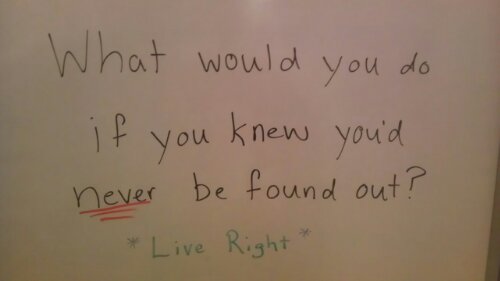 What would you do
if you knew you'd
never be found out?
* Live Right *